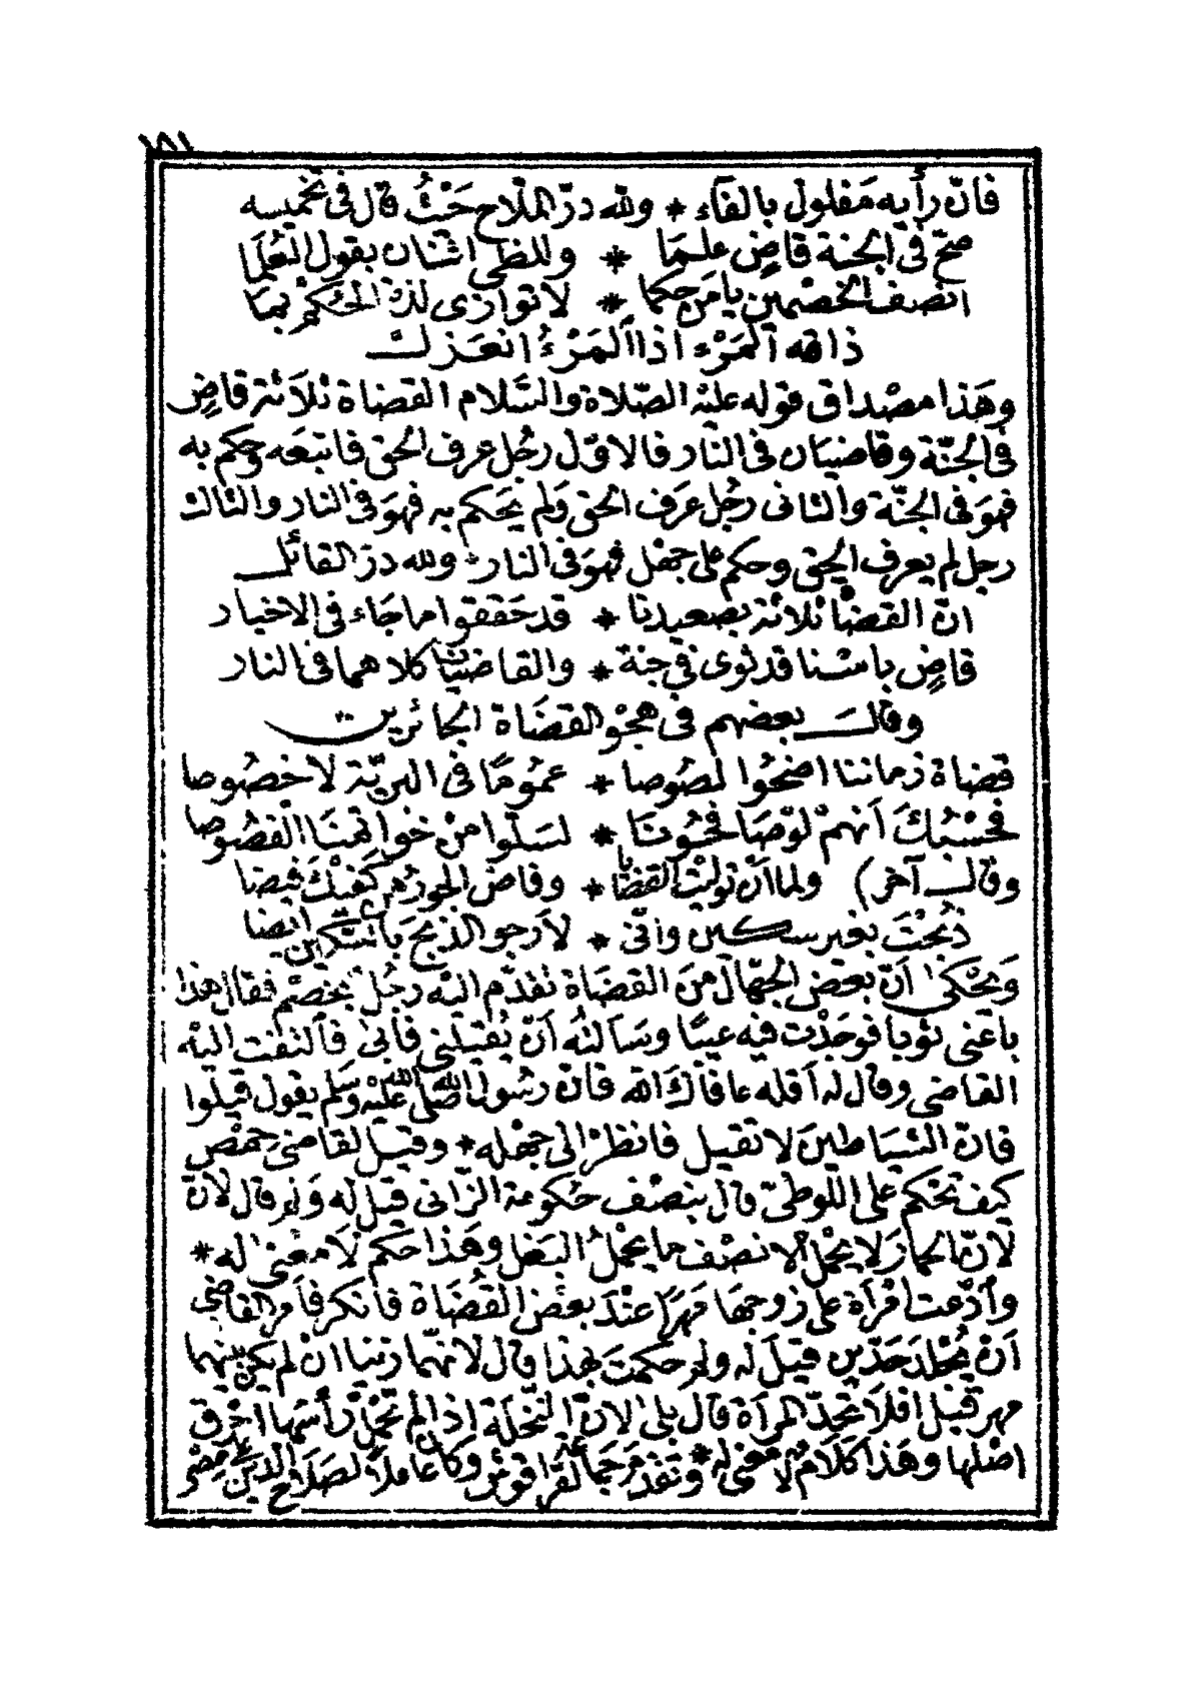 ١٨١
فانّ رأيه مَفلولٌ بالفَآءِ * ولله درّ الملّاح حَيْثُ قال في تخميسه
صحّ في الجنة قاضٍ علـمَا * وللظى اثنان بقول العُلَمَا
انصف الخصمين يا من حكما * لا توازى لذة الحُكْمِ بما
ذاقه اَلمَرْء اذا اَلمَرْءُ انعَـزل
وهَذا مصْداق قوله عليْه الصّلاة والسَّلام القضاة ثلاَثة قاضٍ
في الجنّة وقاضيَان في النار فالاوّل رجُل عرف الحق فاتبعَه وحكم به
فهوَ في الجنّة والثاني رجُل عَرف الحق وَلم يَحكم به فهوَ في النار والثالث
رجل لم يعرف الحق وحكم على جهْل فهوَ في النار ولله درّ القائل
انّ القضاة ثلاثة بصعيدنا * قد حَققوا ما جَاء في الاخبار
قاضٍ باسْنا قد ثوى في جنة * والقاضيَان كلاهما في النار
وقالَ بعضهم في هجْو القضَاة الجائرين
قضاة زماننا اضحُوا لصُوصا * عمُومًا في البريّة لا خصُوصا
فحسْبُكَ اَنهمْ لوْ صَافحُونَا * لسَلّوا منْ خواتمنَا الفصُوصا
وقال آخر) ولما اَنْ توليْت القضايا * وفاض الجورُ من كفيْك فيضا
ذُبحْتَ بغير سكين وانّي * لاَرجو الذبح بالسّكين ايضا
وَيحْكى اَنّ بعض الجهّال منَ القضَاة تقدّم اليْه رجُل بخصْم فقال هذا
باعَنى ثوبا فوجَدْت فيْه عيبًا وسَاَلتُه اَنْ يُقيلنى فاَبى فاَلتفت اليْه
القاضي وقال له اَقله عافاكَ الله فانّ رسُول الله صَلى الله عليْه وَسَلم يقول قيلوا
فانّ الشيَاطينَ لا تقيل فانظرْ الى جهْله * وقيل لقاضى حمْص
كيف تحْكم على اللّوطيّ قال بنصْف حُكومة الزّانى قيل له وَلم قال لانّ
لانّ الحمارَ لا يحْمل الا نصْف ما يحْملُ البَغل وهَذا حَكم لاَ معْنى له *
وادّعت امْرأة على زوجهَا مَهرًا عنْدَ بعْض القُضَاة فاَنكر فاَمر القاضى
اَنْ يُجْلدَ حَدّين قيلَ له ولم حكمْتَ بهذا قال لانهمَا زنيا ان لم يكن بينهما
مهر قيْل افلاَ تَحُدّ المرأة قال بلى لانّ النّخلَة اذا لم تحْمل رأسُهَا احْرق
اصْلها وهَذا كَلامٌ لا معْنى له * وتقدّم رَجُل لقراقوش وكانَ عاملًا لصَلاح الدين على مصْر